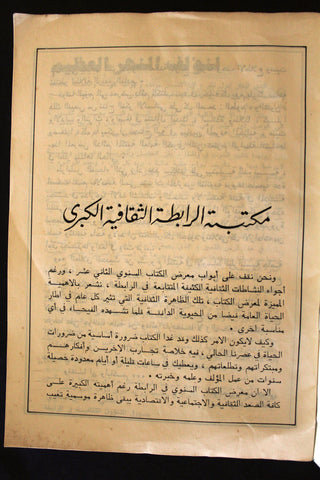 مكتبة الرابطة الثقافية الكبرى
ونحن نقف على أبواب معرض الكتاب السنوي الثاني عشر ، ورغم
أجواء النشاطات الثقافية الكثيفة المتتابعة في الرابطة ، نشعر بالاهمية
المميزة لمعرض الكتاب ، تلك الظاهرة الثقافية التي تثير كل عام في اطار
الحياة العامة نبضا من الحيوية الدافقة قلما تشهده الفيحاء في أي
مناسبة اخرى .
وكيف لايكون الامر كذلك وقد غدا الكتاب ضرورة أساسية من ضرورات
الحياة في عصرنا الحالي ، فيه خلاصة تجارب الاخرين وأفكارهم
ومبتكراتهم وتطلعاتهم ، ويعطيك في ساعات قليلة أو أيام معدودة حصيلة
سنوات من عمل المؤلف وعلمه وخبرته .
الا أن معرض الكتاب السنوي في الرابطة رغم أهميته الكبيرة على
كافة الصعد الثقافية والاجتماعية والاقتصادية يبقى ظاهرة موسمية تغيب